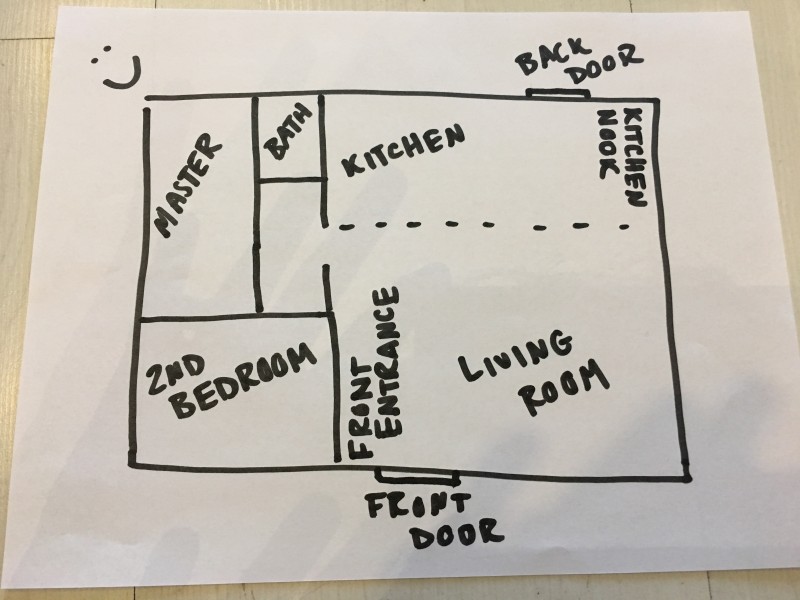 BACK
DOOR
MASTER
BATH
KITCHEN
KITCHEN
NOOK
2ND
BEDROOM
FRONT
ENTRANCE
LIVING
ROOM
FRONT
DOOR